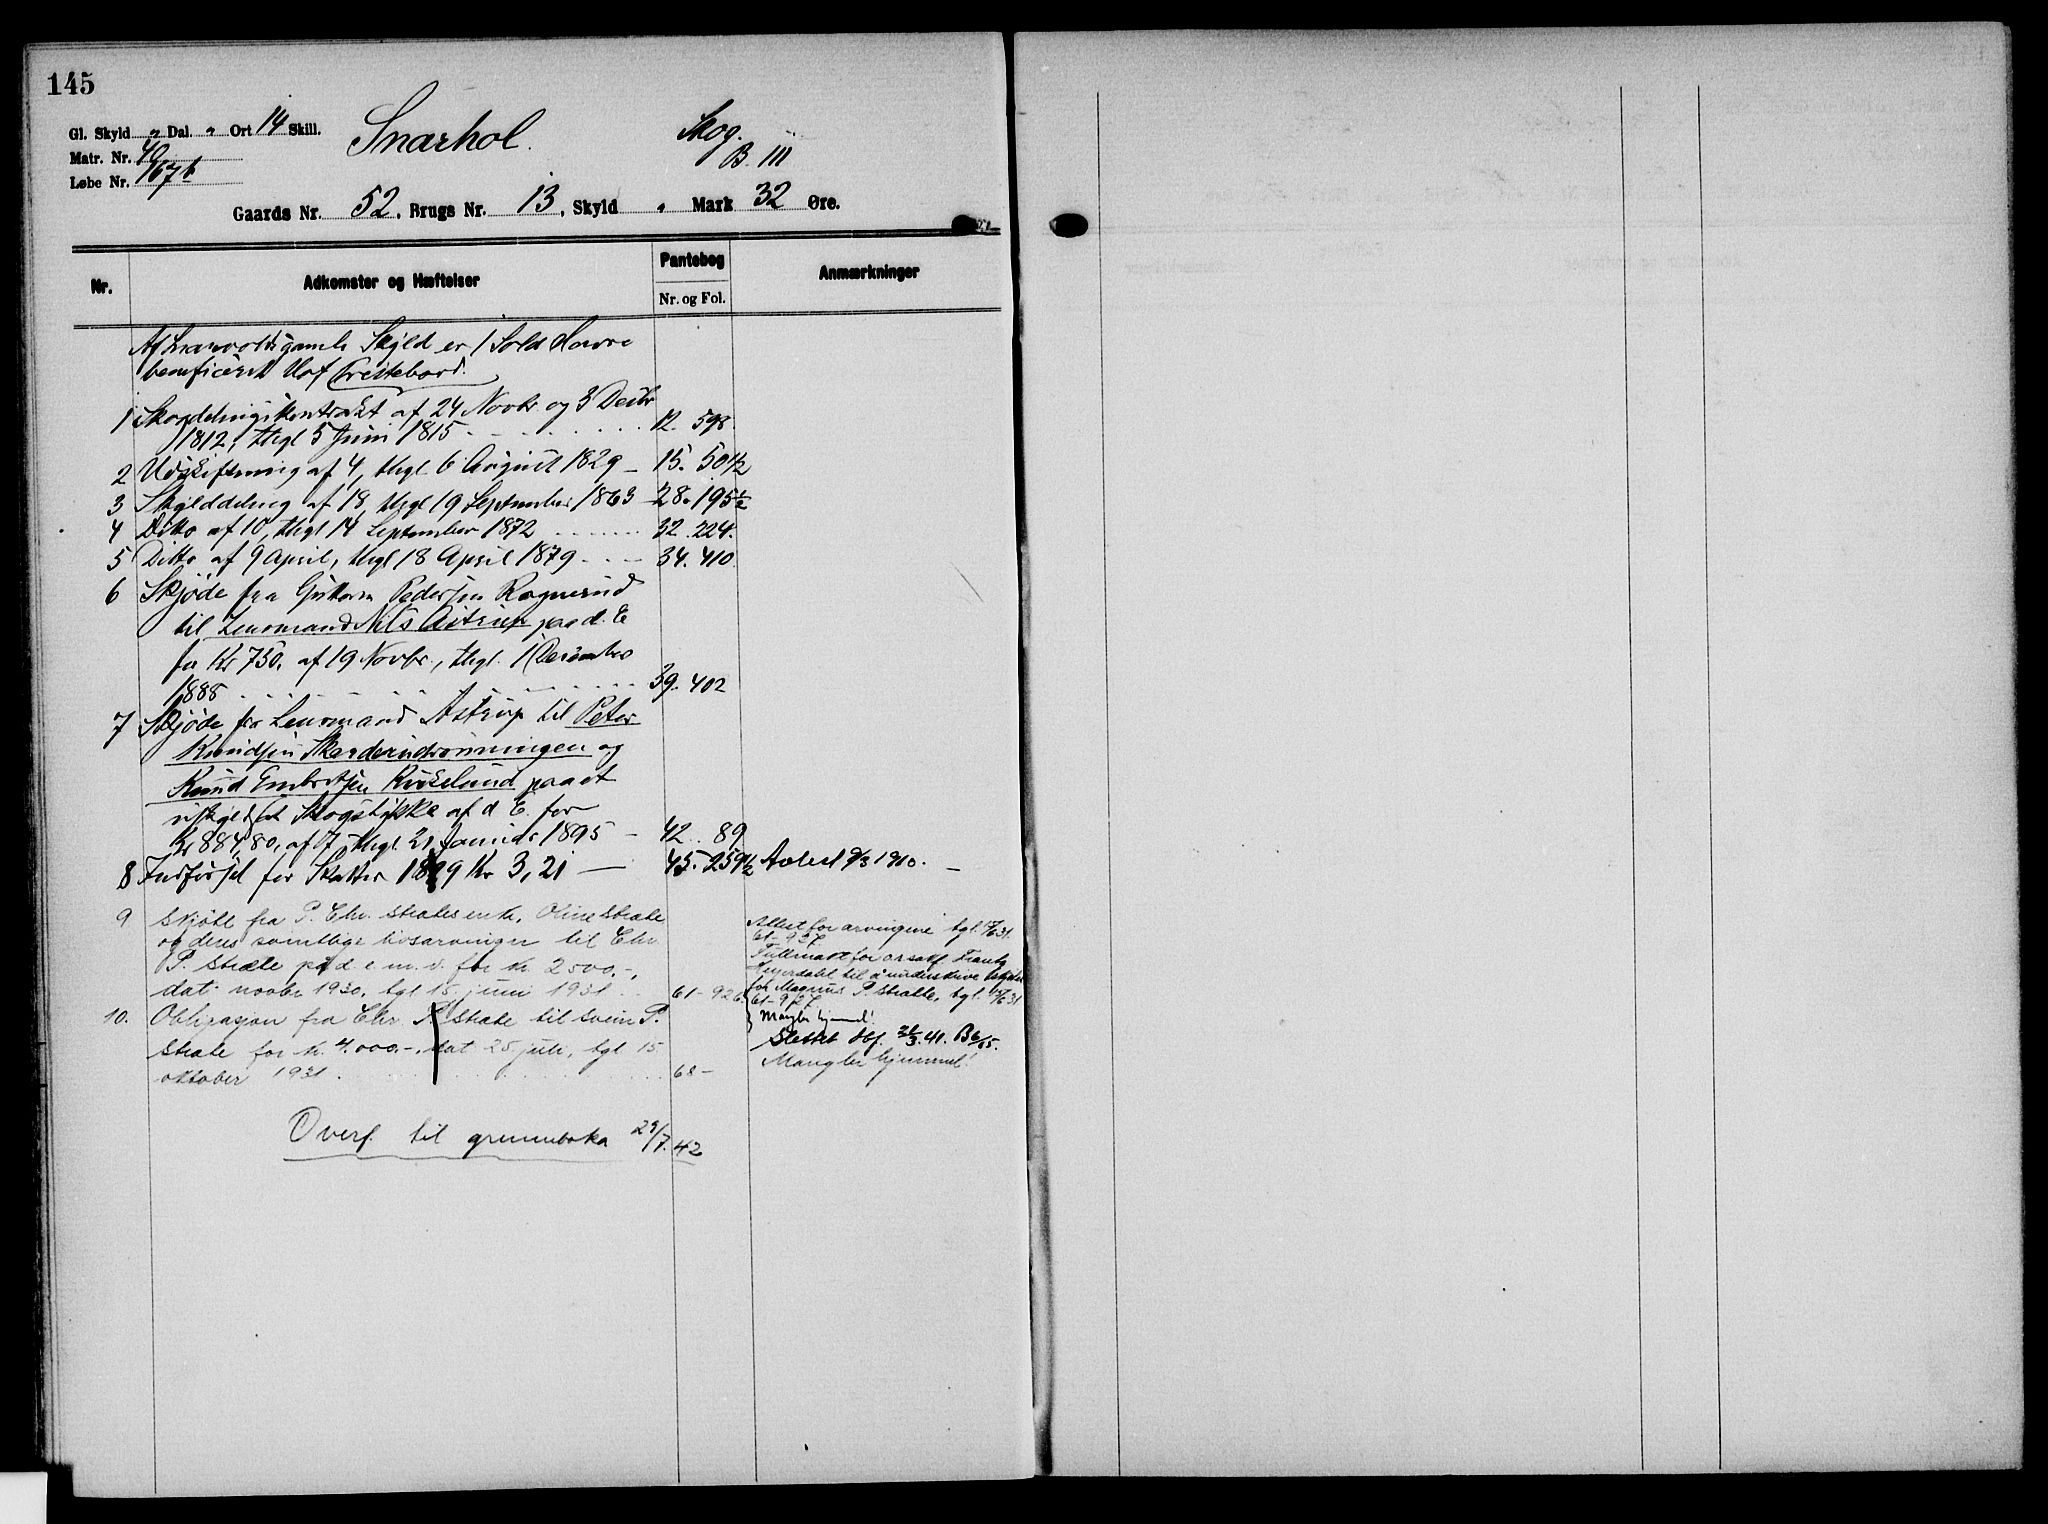 145
Gl. Skyld " Dal. " Ort 14 Skill.
Snarhol.
Skog.
B. III
Matr. Nr. 40
Løbe Nr. 167b
Gaards Nr. 52, Brugs Nr. 13, Skyld " Mark 32 Øre.
Nr.
Adkomster og Hæftelser
Pantebog
Nr. og Fol.
Anmærkninger
gamle Skyld er 1 Sold Havre
beneficeret Hof Prestebord.
1 Skogdelingskontrakt af 24 Novbr og 3 Desbr
1812, thgl 5 Juni 1815 12. 598.
2 Udskiftning af 4, thgl 6 August 1829 15. 50 1/2
3 Skylddeling af 18, thgl 19 September 1863 28. 195 1/2
4 Ditto af 10, thgl 14 September 1872 32. 224.
5 Ditto af 9 April, thgl 18 April 1879 34. 410
6 Skjøde fra Guttorm Pedersen Rognerud
til Lensmand Nils Astrup paa d. E
for Kr 750, af 19 Novbr., thgl. 1 December
1888 39. 402
7 Skjøde fra Lensmand Astrup til Peter
Knudsen Skarderudrønningen og
Knud Embretsen paa et
Skogstykke af d. E. for
Kr 884,80, af 7, thgl 21 Januar 1895 42. 89
8 Indførsel for Skatter 1899 Kr 3,21 45. 259 1/2 Avlest 9/3 1910.
9 Skjøte fra P. Chr. Stratesenke, Oline Strate
og deres samtlige livsarvinger til Chr.
P. Strate på d. e. m. v. for kr. 2500.-,
dat. novbr 1930, tgl 15. juni 1931 61-926
Attest for arvingene tgl. 15/6 31.
61-927.
Fullmakt for orsakf. Frantz
Heyerdahl til å underskrive skjøtet
for Magnus P. Strate, tgl. 15/6 31
61-927
Mangler hjemmel!
10. Obligasjon fra Chr. P. Strate til Svein P.
Strate for kr. 4.000.-, dat 25 juli, tgl 15.
oktober 1931 68-
Slettet
Mangler hjemmel!
Overf. til grunnboka 29/7. 42